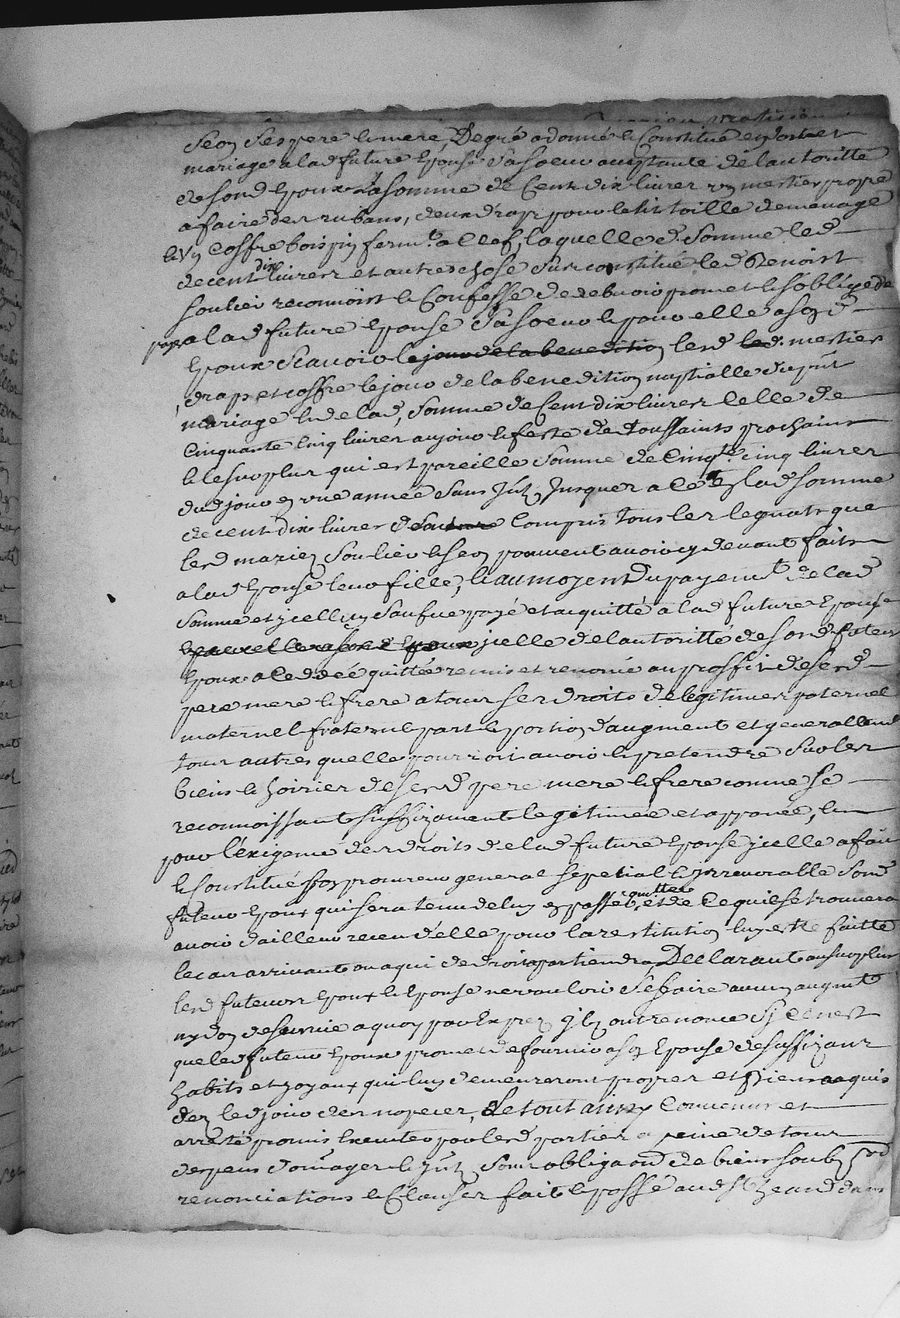 Seon Ses pere & mere, De gré a donné & Constitué en dot et
mariage a lad future Epouse Sa Soeur acceptante de l'autoritté
de sond Epoux La somme de Cent dix livres un mestier propre
a faire des rubans, deux draps pour le lit toille de menage
& Un Coffre bois pin ferm.t a Clef, laquelle d. Somme led
de cent dix livres et autres chose Sus constitué led Benoist
Soulier reconnoist & Confesse de debvoir promet & s'oblige de
payer a lad future Epouse Sa Soeur & pour elle a son d
Epoux Scavoir le jour de la benediction lesd led. mestier
drap et coffre le jour de la benediction nuptialle du pnt
mariage & de lad. Somme de Cent dix livres Celle de
Cinquante Cinq livres au jour & feste de Toussaints prochains
& le surplus qui est pareille Somme de Cinqte Cinq livres
dud jour en une année Sans Intz, Jusques a Ce lad somme
de cent dix livres Compris tous les legaats que
lesd mariez Soulier & Seon pouvent avoir cy devant faits
a lad Epouse leur fille, & au moyent du payemt de lad
Somme et jcelluy Sauf ne payé et acquitté a lad future Epouse
& pour elle a sond Epoux jcelle de l'autoritté de sond futeur
Epoux a Ced deé quitté remis et renoncé au proffit de sesd
pere mere & frere a tous ses droits de legitimes paternel
maternel fraternel part & portion d'augment et generallemt
tous autres quelle pourroit avoir & pretendre Sur les
biens & hoiries de sesd pere mere & frere comme se
reconnoissant Suffizament legitimée et appanée, &
pour l'exigence des droits de lad future Epouse jcelle a fait
& Constitué Son procureur general Sepetial & Irrevocable Sond
futeur Epoux qui sera tenu de luy en passer quittce et de Ce quil se trouvera
avoir d'ailleur receu d'elle pour la restitution luy estre faitte
le cas arrivant ou a qui de droit apartiendra, Declarant au surplus
lesd futeurs Epoux & Epouse ne vouloir Se faire aucun augmt
ny don de survie a quoy par Expez Ilz ont renoncé Sy Ce n'est
que led futeur Epoux promet de fournir a son Epouse de suffizans
habits et joyaux qui luy demeureront propres et Biens acquis
dez led jour des nopces, Le tout ainsy Convenus et
arresté promis Executer par lesd parties a peine de tous
despens domages & Intz Sous obliga.on de biens Soubz
renonciations & Clauses fait & passé aud St Jean d dans